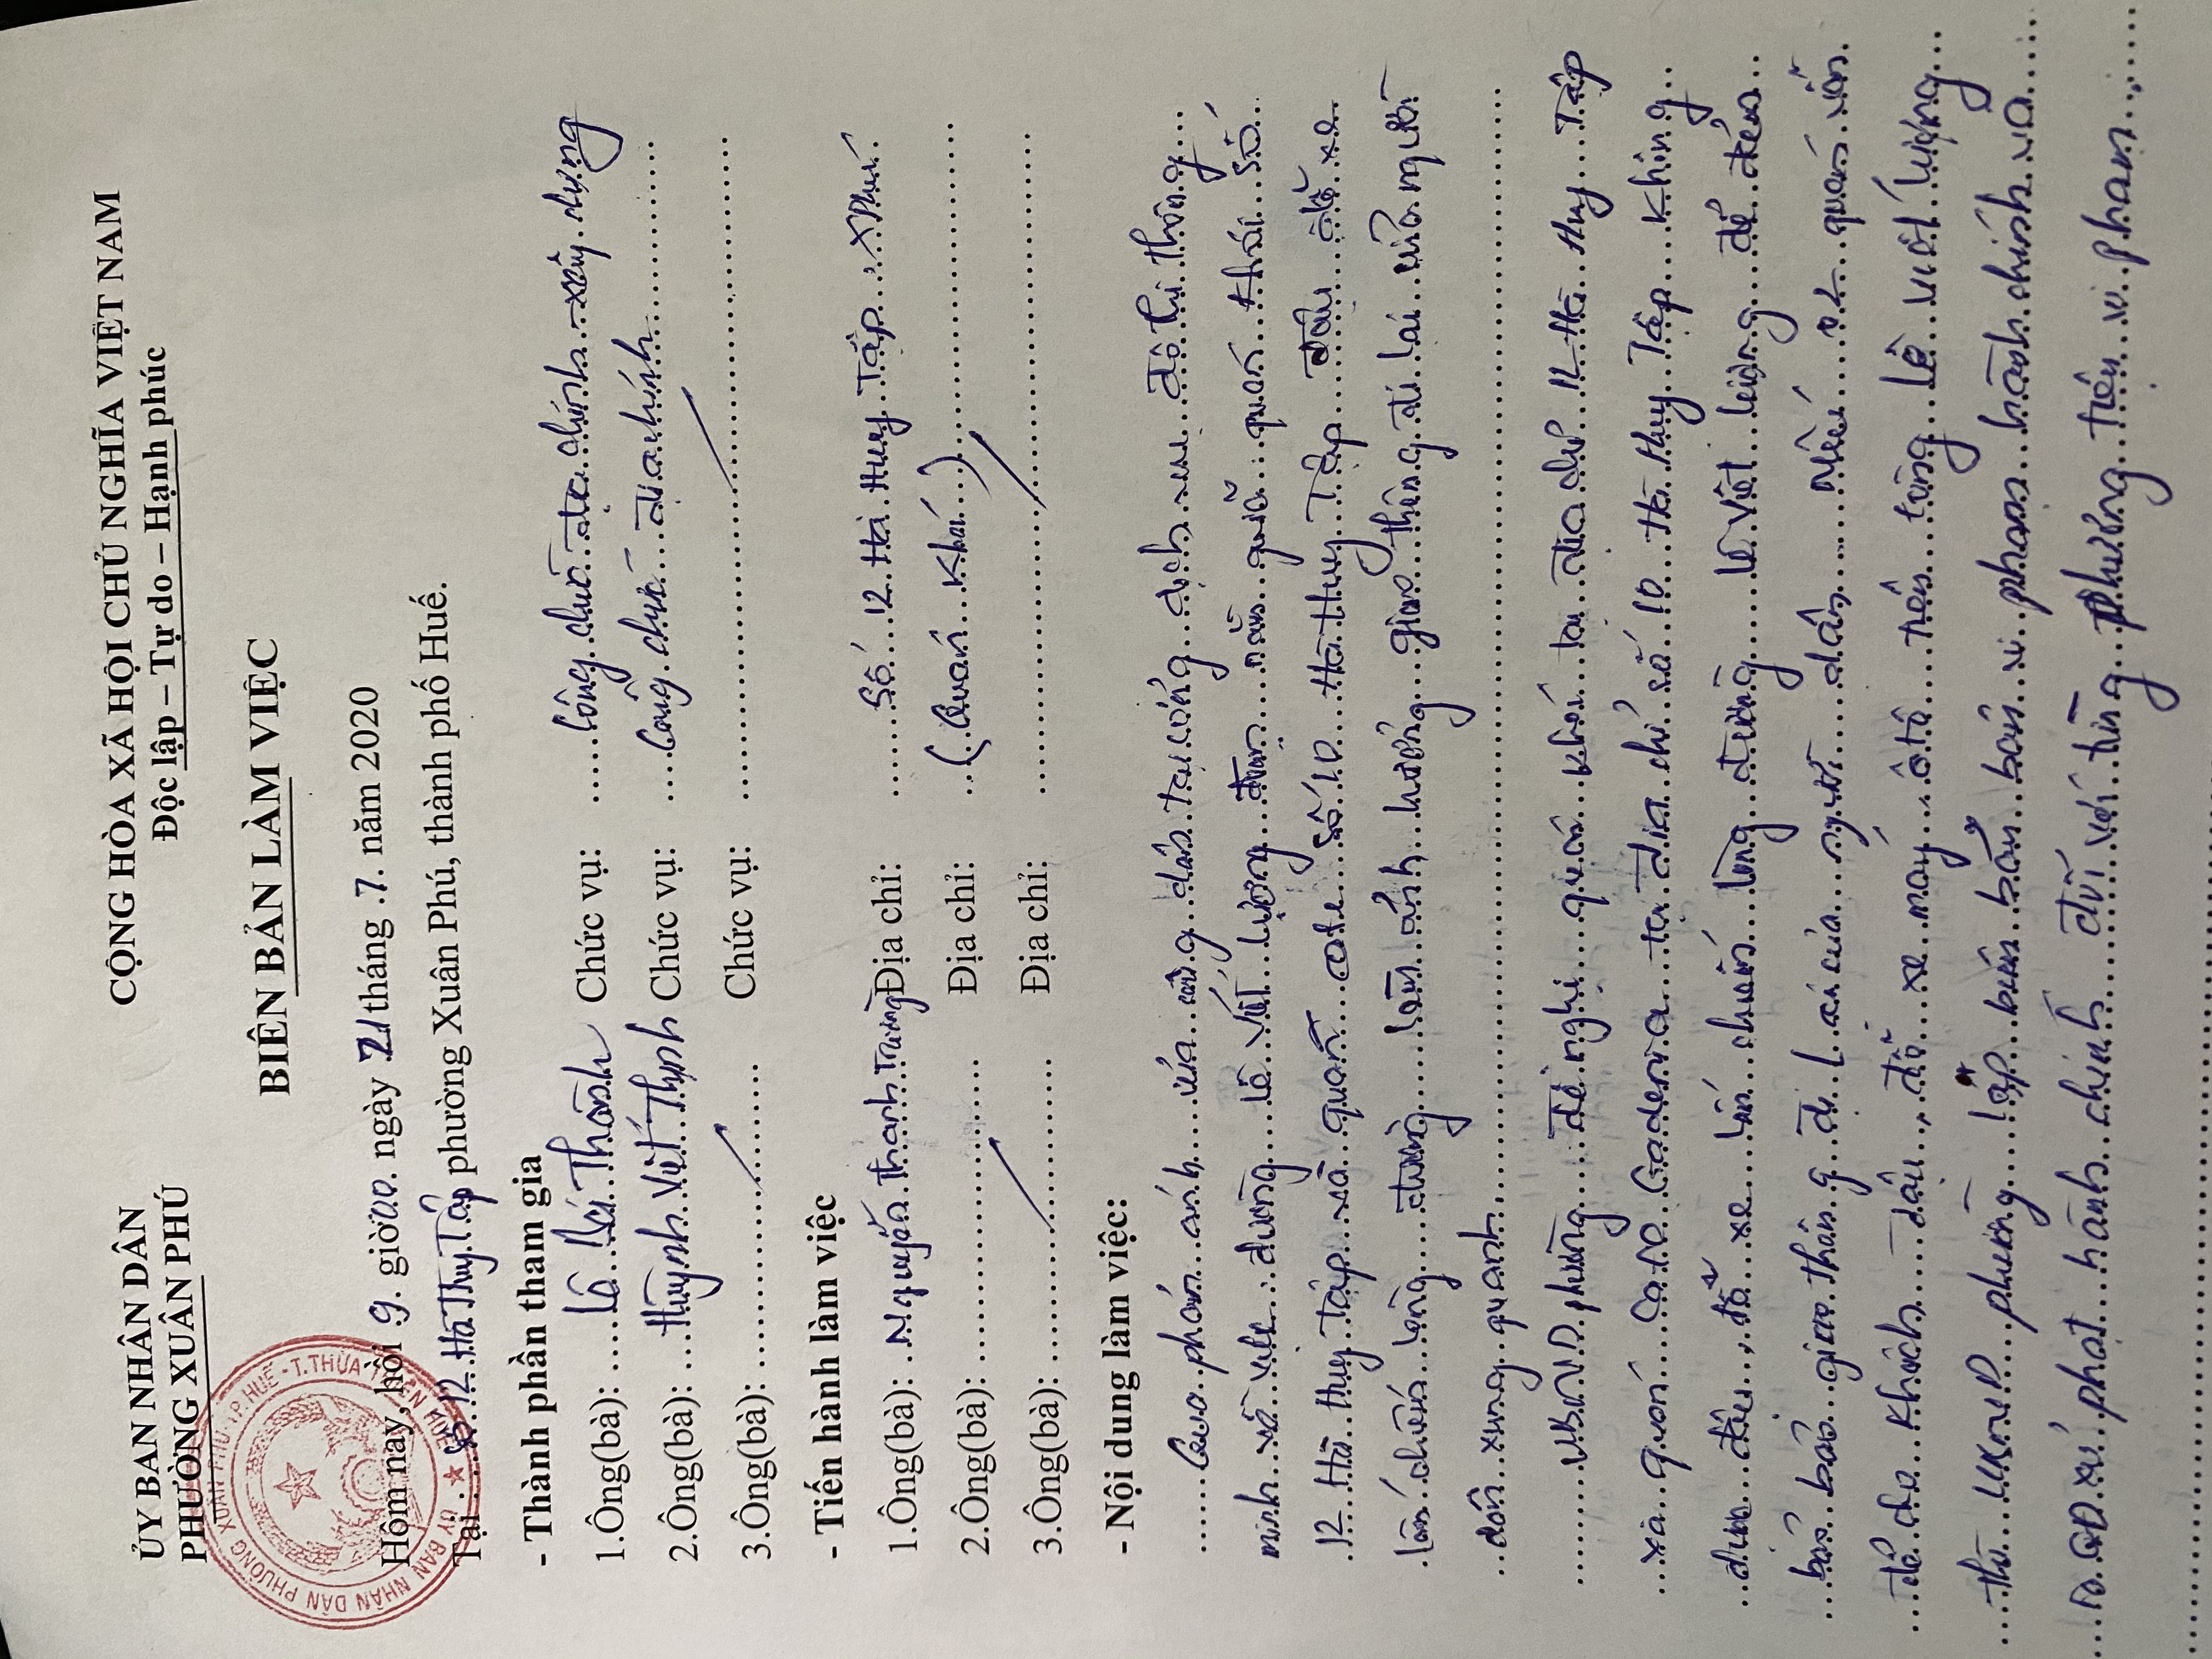 ỦY BAN NHÂN DÂN
PHƯỜNG XUÂN PHÚ
CỘNG HÒA XÃ HỘI CHỦ NGHĨA VIỆT NAM
Độc lập – Tự do – Hạnh phúc
BIÊN BẢN LÀM VIỆC
Hôm nay, hồi 9 giờ 00 ngày 21 tháng 7 năm 2020
Tại Số 12 Hà Huy Tập phường Xuân Phú, thành phố Huế.
- Thành phần tham gia
1.Ông(bà): Lê Thành Chức vụ: Công chức địa chính - xây dựng
2.Ông(bà): Huỳnh Viết Thịnh Chức vụ: Công chức địa chính
3.Ông(bà): Chức vụ:
- Tiến hành làm việc
1.Ông(bà): Nguyễn Thanh Trường Địa chỉ: Số 12 Hà Huy Tập, X Phú
2.Ông(bà): Địa chỉ: (Quán Khói)
3.Ông(bà): Địa chỉ:
- Nội dung làm việc:
Qua phản ánh của công dân tại cổng dịch vụ đô thị thông
minh về việc đường Lê Viết Lượng đoạn nằm giữa quán Khói số
12 Hà Huy Tập và quán cafe số 10 Hà Huy Tập đậu đỗ xe
lấn chiếm lòng đường làm ảnh hưởng giao thông đi lại của người
dân xung quanh.
UBND phường đề nghị quán Khói tại địa chỉ 12 Hà Huy Tập
và quán Cafe Gadenia tại địa chỉ số 10 Hà Huy Tập không
được đậu, đỗ xe lấn chiếm lòng đường Lê Viết Lượng để đảm
bảo giao thông đi lại của người dân. Nếu 02 quán vẫn
để cho khách đậu, đỗ xe máy, ôtô trên đường Lê Viết Lượng
thì UBND phường lập biên bản vi phạm hành chính và
ra QĐ xử phạt hành chính đối với từng phương tiện vi phạm.
ỦY BAN NHÂN DÂN PHƯỜNG XUÂN PHÚ - TP. HUẾ - T. THỪA THIÊN HUẾ